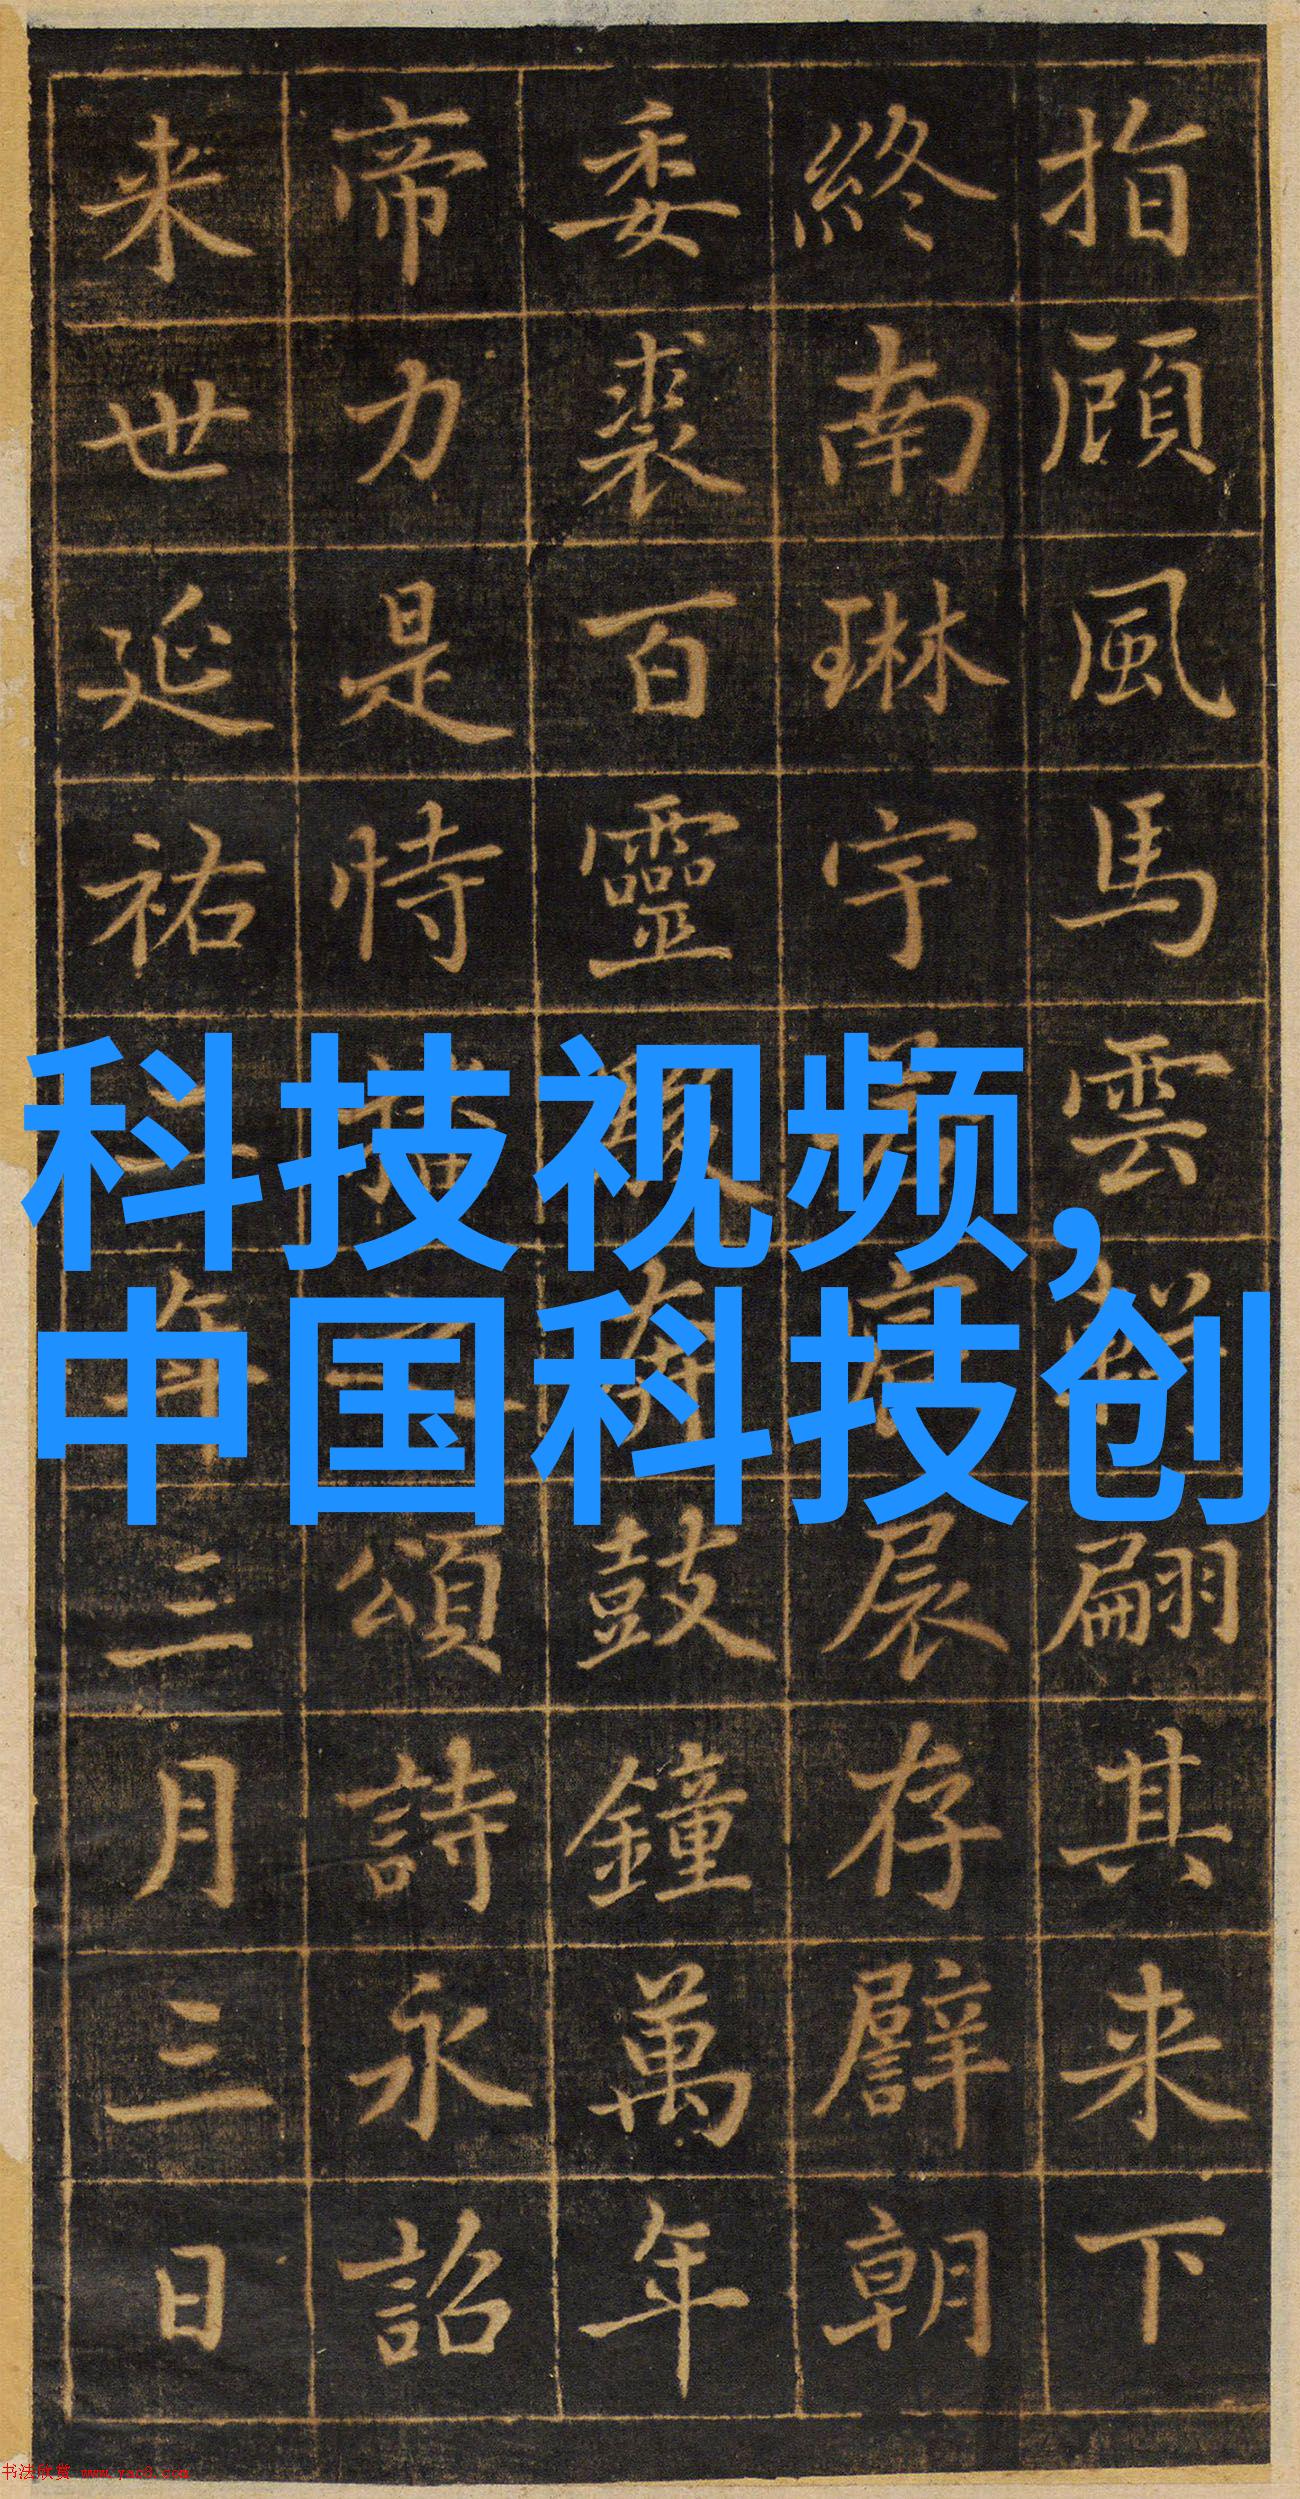 指顧風馬雲翩其来下
終南琳宇存譬朝
委裘百靈鼓鐘萬年
帝力是恃頌詩永詔
来世延祐年三月三日
科技视频,
中国科技创
书法欣赏 www.yac8.com